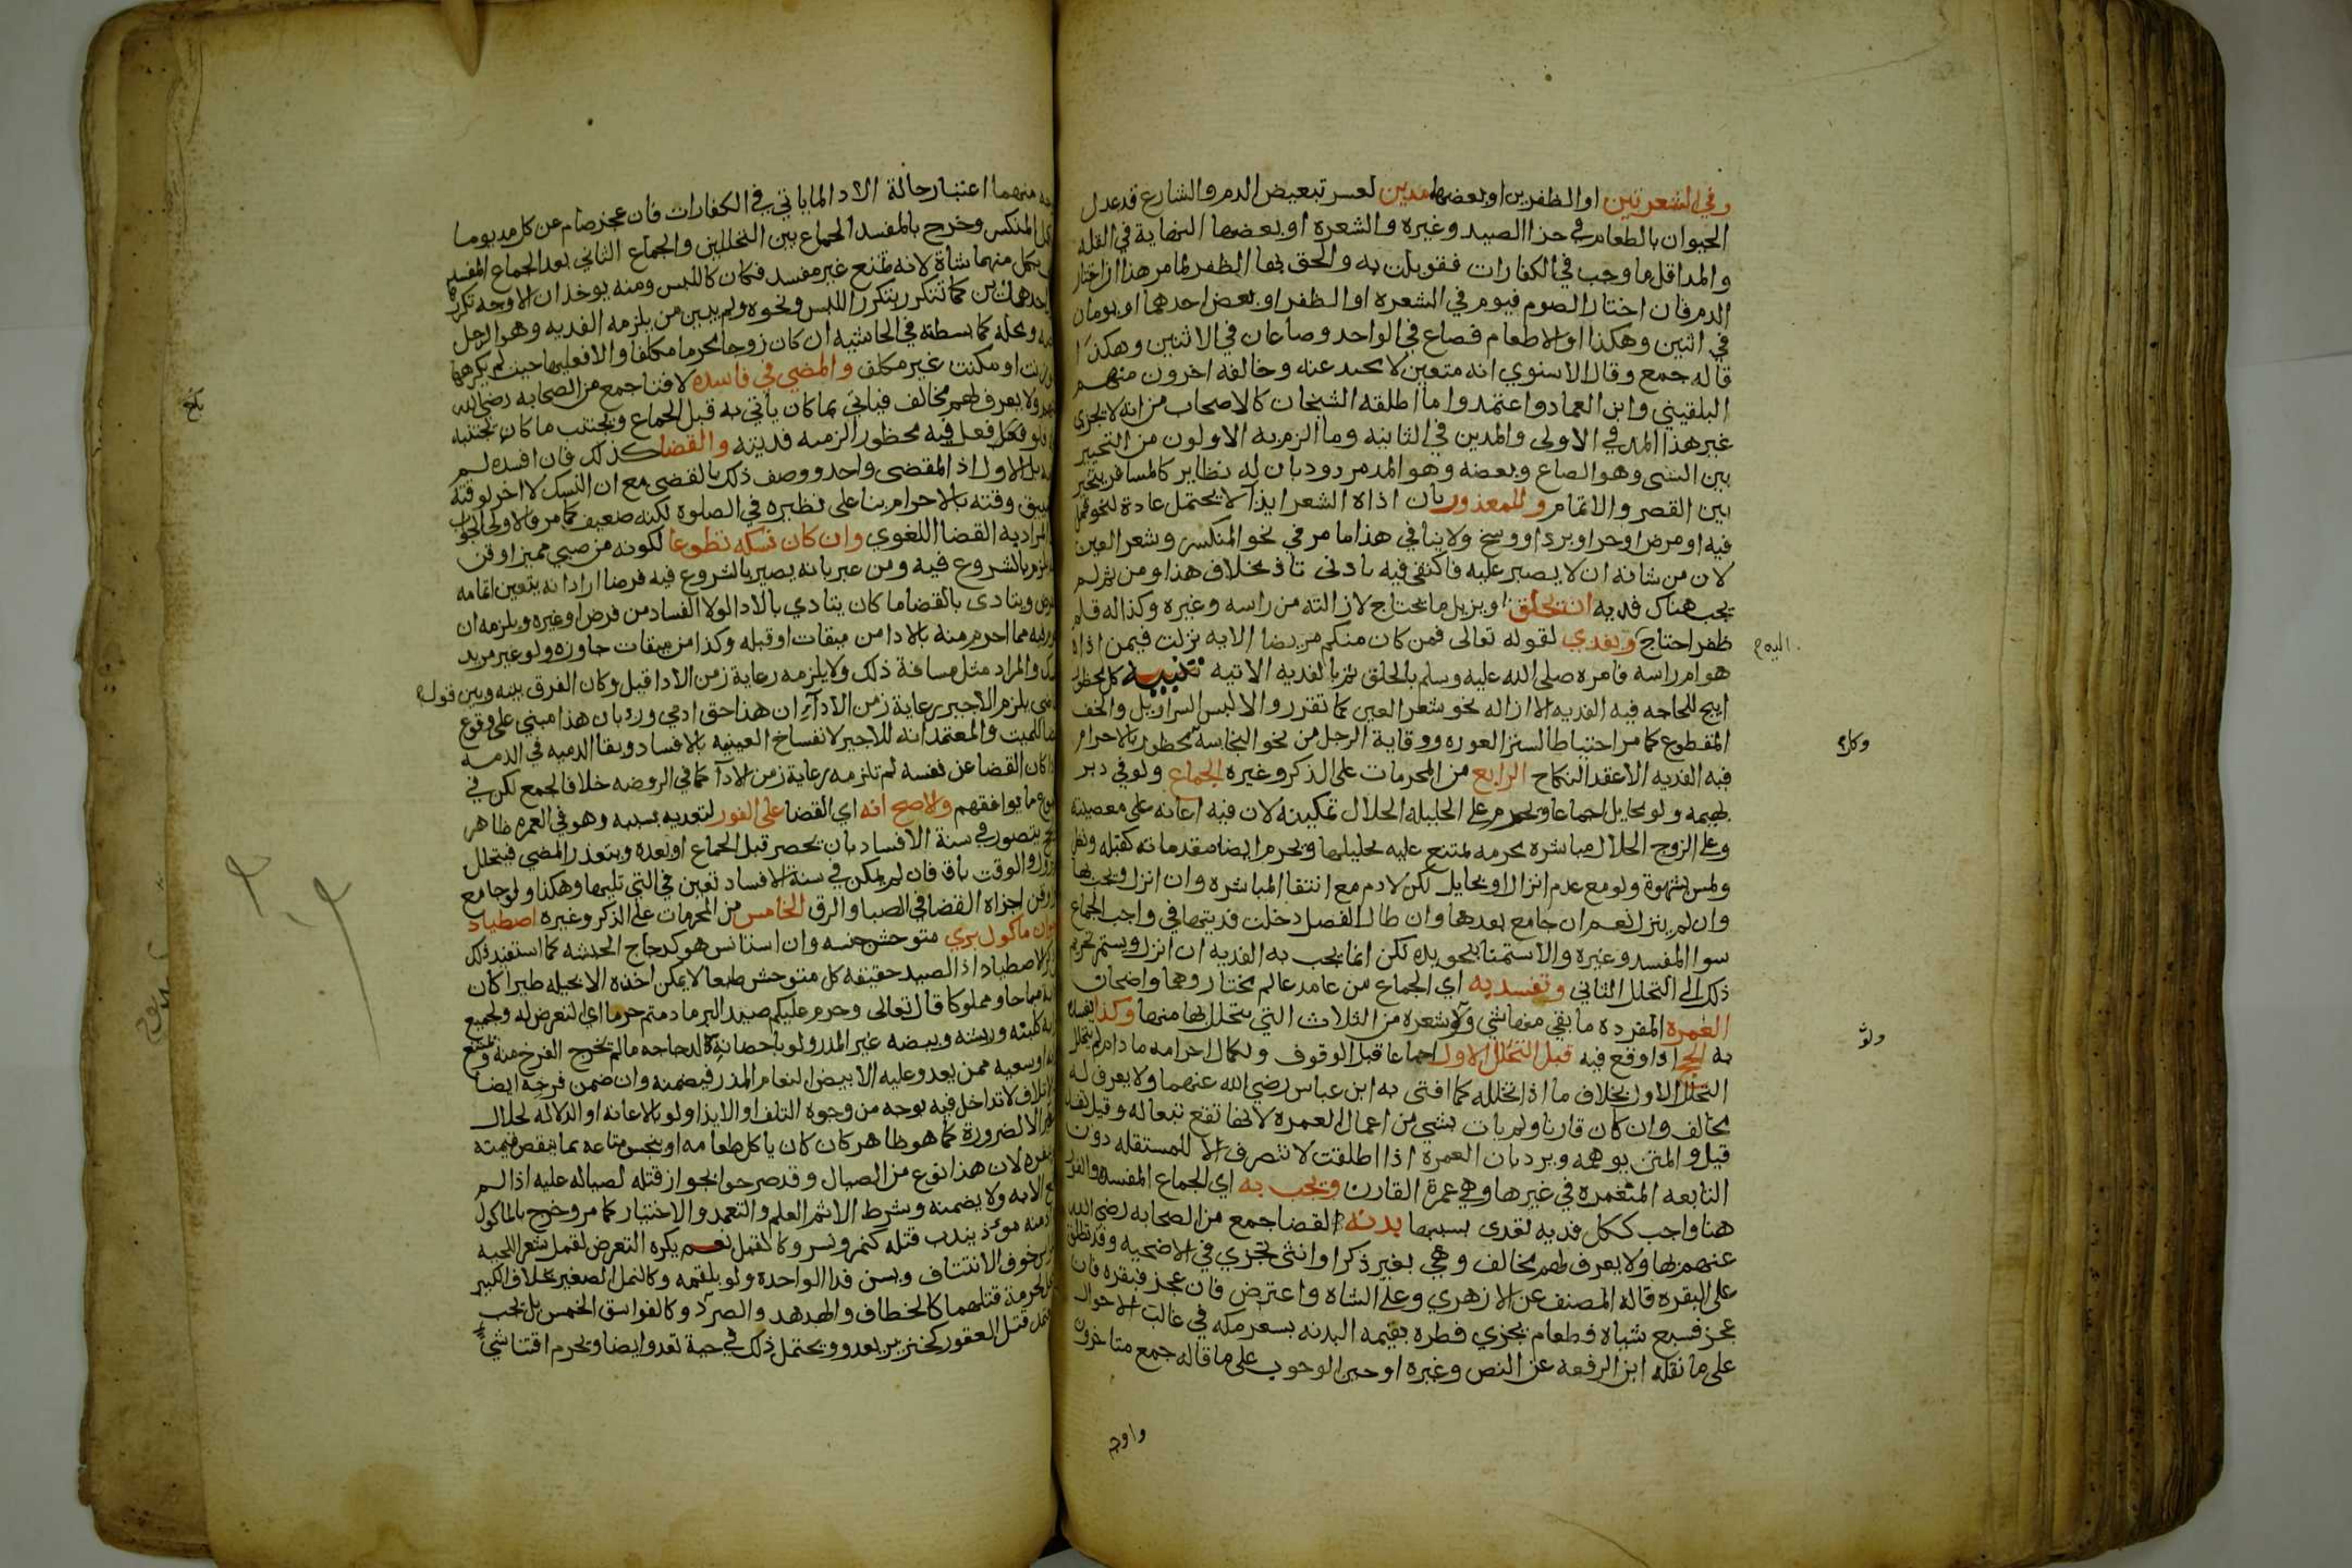 وفي الشعرتين او الظفرين او بعضهما مدين لعسر تبعيض الدم والشارع قد عدل
الحيوان بالطعام في جزا الصيد وغيره والشعرة او بعضها النهاية في القله
والمد اقل ما وجب في الكفارات فقوبلت به والحق بها الظفر لما مر هذا ان اختار
الدم فان اختار الصوم فيوم في الشعره او الظفر او بعض احدهما او يومان
في اثنين وهكذا او الاطعام فصاع في الواحد وصاعان في الاثنين وهكذا
قاله جمع وقال الاسنوي انه متعين لا محيد عنه وخالفه اخرون منهم
البلقيني وابن العماد واعتمدوا ما اطلقه الشيخان كالاصحاب من انه لا يجزي
غير هذا المد في الاولى والمدين في الثانيه وما الزم به الاولون من التخيير
بين الشي وهو الصاع وبعضه وهو المد مردود بان له نظاير كالمسافر يتخير
بين القصر والاتمام وللمعذور بان اذاه الشعر ايذا لا يحتمل عادة لنحو قمل
فيه او مرض او حر او برد او وسخ ولا ينافي هذا ما مر في نحو المنكسر وشعر العين
لان من شانه ان لا يصبر عليه فاكتفي فيه بادنى تاذ بخلاف هذا ومن ثم لم
يجب هناك فديه ان يحلق او يزيل ما يحتاج لازالته من راسه وغيره وكذا له قلم
ظفر احتاج ويفدي لقوله تعالى فمن كان منكم مريضا الايه نزلت فيمن اذاه
هوام راسه فامره صلى الله عليه وسلم بالحلق ثم بالفديه الاتيه تنبيه كل محظور
ابيح للحاجه فيه الفديه الا ازاله نحو شعر العين كما تقرر والا لبس السراويل والخف
المقطوع كما مر احتياطا لستر العوره ووقاية الرجل من نحو النجاسة كل محظور بالاحرام
فيه الفديه الا عقد النكاح الرابع من المحرمات على الذكر وغيره الجماع ولو في دبر
بهيمه ولو بحايل اجماعا ويحرم على الحليله الحلال تمكينه لان فيه اعانه على معصيته
وعلى الزوج الحلال مباشره محرمه لمتنع عليه تحليلها ويحرم ايضا مقدماته كقبله ونظر
ولمس بشهوة ولو مع عدم انزال او بحايل لكن لا دم مع انتفا المباشره وان انزل ويجب بها
وان لم ينزل نعم ان جامع بعدها وان طال الفصل دخلت فديتها في واجب الجماع
سوا المفسد وغيره والاستمنا بنحو يده لكن انما يجب به الفديه ان انزل ويستمر تحريم
ذلك الى التحلل الثاني وتفسد به اي الجماع من عامد عالم مختار وهما واضحان
العمرة المفرده ما بقي منها شي ولو شعره من الثلاث التي يتحلل بها منها وكذا يفسد
به الحج اذا وقع فيه قبل التحلل الاول اجماعا قبل الوقوف ولكمال احرامه ما دام لم يتحلل
التحلل الاول بخلاف ما اذا تحلله كما افتى به ابن عباس رضي الله عنهما ولا يعرف له
مخالف وان كان قارنا ولم يات بشي من اعمال العمره لانها تقع تبعا له وقيل تفسد
قيل والمتن يوهمه ويرد بان العمرة اذا اطلقت لا تنصرف الا للمستقله دون
التابعه المنغمره في غيرها وهي عمرة القارن ويجب به اي الجماع المفسد والفور
هنا واجب ككل فديه تعدى بسببها بدنه لقضا جمع من الصحابه رضي الله
عنهم بها ولا يعرف لهم مخالف وهي بعير ذكرا او انثى تجزي في الاضحيه وقد تطلق
على البقره قاله المصنف عن الازهري وعلى الشاه واعترض فان عجز فبقره فان
عجز فسبع شياه فطعام يجزي فطره بقيمه البدنه بسعر مكه في غالب الاحوال
على ما نقله ابن الرفعه عن النص وغيره او حين الوجوب على ما قاله جمع متاخرون
واوجه
اليه م
وكل م
ولو
منهما اعتبار حالة الادا لما ياتي في الكفارات فان عجز صام عن كل مد يوما
المنكسر وخرج بالمفسد الجماع بين التحللين والجماع الثاني بعد الجماع المفسد
بكل منهما شاة لانه تمتع غير مفسد فكان كاللبس ومنه يوخذ ان الاوجه تكرر
كما تتكرر بتكرر اللبس ونحوه ولم يبين من يلزمه الفديه وهو الرجل
ومحله كما بسطته في الحاشيه ان كان زوجا محرما مكلفا والا فعليها حيث لم يكرهها
او مكنت غير مكلف والمضي في فاسده لافتا جمع من الصحابه رضي الله
ولا يعرف لهم مخالف فياتي بما كان ياتي به قبل الجماع ويجتنب ما كان يجتنبه
فلو فعل فيه محظور الزمه فديته والقضا كذلك فان افسده لم
بل الاول اذ المقضى واحد ووصف ذلك بالقضى مع ان النسك لا اخر لوقته
وقته بالاحرام بنا على نظيره في الصلوة لكنه ضعيف كما مر والاولى الجواب
المراد به القضا اللغوي وان كان نسكه تطوعا لكونه من صبي مميز او قن
بالشروع فيه ومن عبر بانه يصير بالشروع فيه فرضا اراد انه يتعين اتمامه
ويتادى بالقضا ما كان يتادي بالادا لولا الفساد من فرض او غيره ويلزمه ان
مما احرم منه بالادا من ميقات او قبله وكذا من ميقات جاوزه ولو غير مريد
والمراد مثل مسافة ذلك ولا يلزمه رعاية زمن الادا قيل وكان الفرق بينه وبين قول
يلزم الاجير رعاية زمن الادآ ان هذا حق ادمي ورد بان هذا مبني على وقوع
للميت والمعتمد انه للاجير لانفساخ العينيه بالافساد وبقا الذميه في الذمه
كان القضا عن نفسه لم تلزمه رعاية زمن الادآ كما في الروضه خلافا لجمع لكن في
ما يوافقهم والاصح انه اي القضا على الفور لتعديه بسببه وهو في العمره ظاهر
يتصور في سنة الافساد بان يحصر قبل الجماع او بعده ويتعذر المضي فيتحلل
والوقت باق فان لم يمكن في سنة الافساد تعين في التي تليها وهكذا ولو جامع
اجزاه القضا في الصبا والرق الخامس من المحرمات على الذكر وغيره اصطياد
ماكول بري متوحش جنسه وان استانس هو كدجاج الحبشه كما استفيد ذلك
الاصطياد اذ الصيد حقيقه كل متوحش طبعا لا يمكن اخذه الا بحيله طيرا كان
مباحا او مملوكا قال تعالى وحرم عليكم صيد البر ما دمتم حرما اي التعرض له ولجميع
كلبنه وريشه وبيضه غير المذر ولو باحضانه لدجاجه ما لم يخرج الفرخ منه ويمتنع
وسعيه ممن يعدو عليه الا بيض النعام المذر فيضمنه وان ضمن فرخه ايضا
لاتلاف لا تداخل فيه بوجه من وجوه التلف او الايذا ولو بالاعانه او الدلاله لحلال
الا لضرورة كما هو ظاهر كان كان ياكل طعامه او ينجس متاعه بما ينقص قيمته
لان هذا نوع من الصيال وقد صرحوا بجواز قتله لصياله عليه اذا لم
الا به ولا يضمنه وشرط الاثم العلم والتعمد والاختيار كما مر وخرج بالماكول
موذ يندب قتله كنمر ونسر وكالقمل نعم يكره التعرض لقمل شعر اللحيه
خوف الانتتاف ويسن فدا الواحده ولو بلقمه وكالنمل الصغير بخلاف الكبير
لحرمة قتلهما كالخطاف والهدهد والصرد وكالفواسق الخمس بل يجب
قتل العقور كخنزير يعدو ويحتمل ذلك في حية تعدو ايضا ويحرم اقتنا شي
بلغ